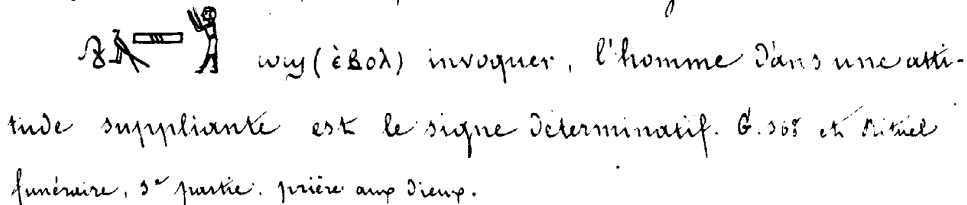 𓍯𓄿𓈙𓀢 ⲱϣ (ⲉ̀ⲃⲟⲗ) invoquer, l'homme dans une atti-
tude suppliante est le signe déterminatif. G. et Rituel
funéraire, 3e partie. prière aux Dieux.